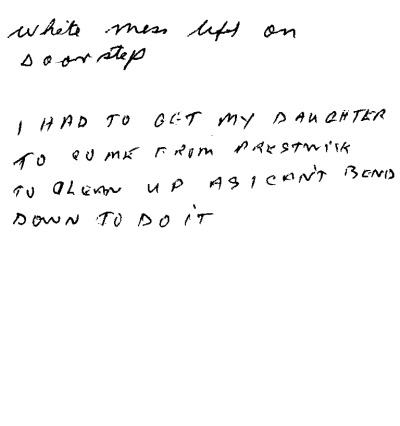 white mess left on
Doorstep
I HAD TO GET MY DAUGHTER
TO COME FROM PRESTWICK
TO CLEAN UP AS I CAN'T BEND
DOWN TO DO IT